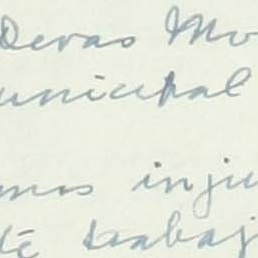 Deras Mo
unicipal
mos inju
té trabaj